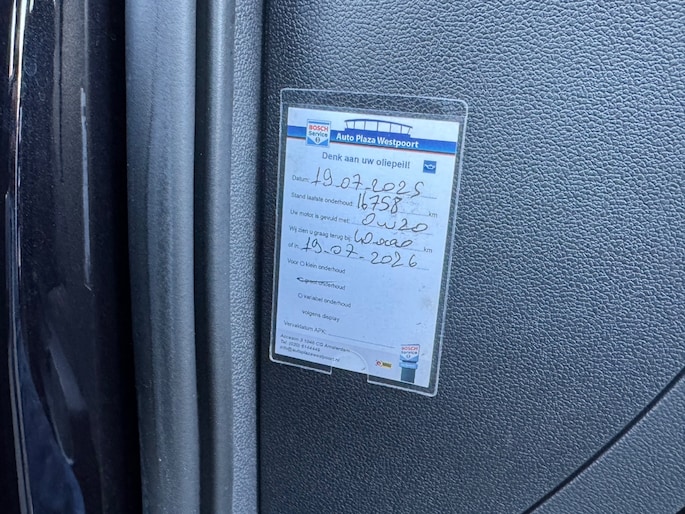 BOSCH
Service
Auto Plaza Westpoort
Denk aan uw oliepeil!
Datum: 19-07-2025
Stand laatste onderhoud: 16758 km
Uw motor is gevuld met: 0w20
Wij zien u graag terug bij: km
of in: 19-07-2026
Voor: O klein onderhoud
groot onderhoud
O variabel onderhoud
volgens display
Vervaldatum APK:
BOSCH
Service